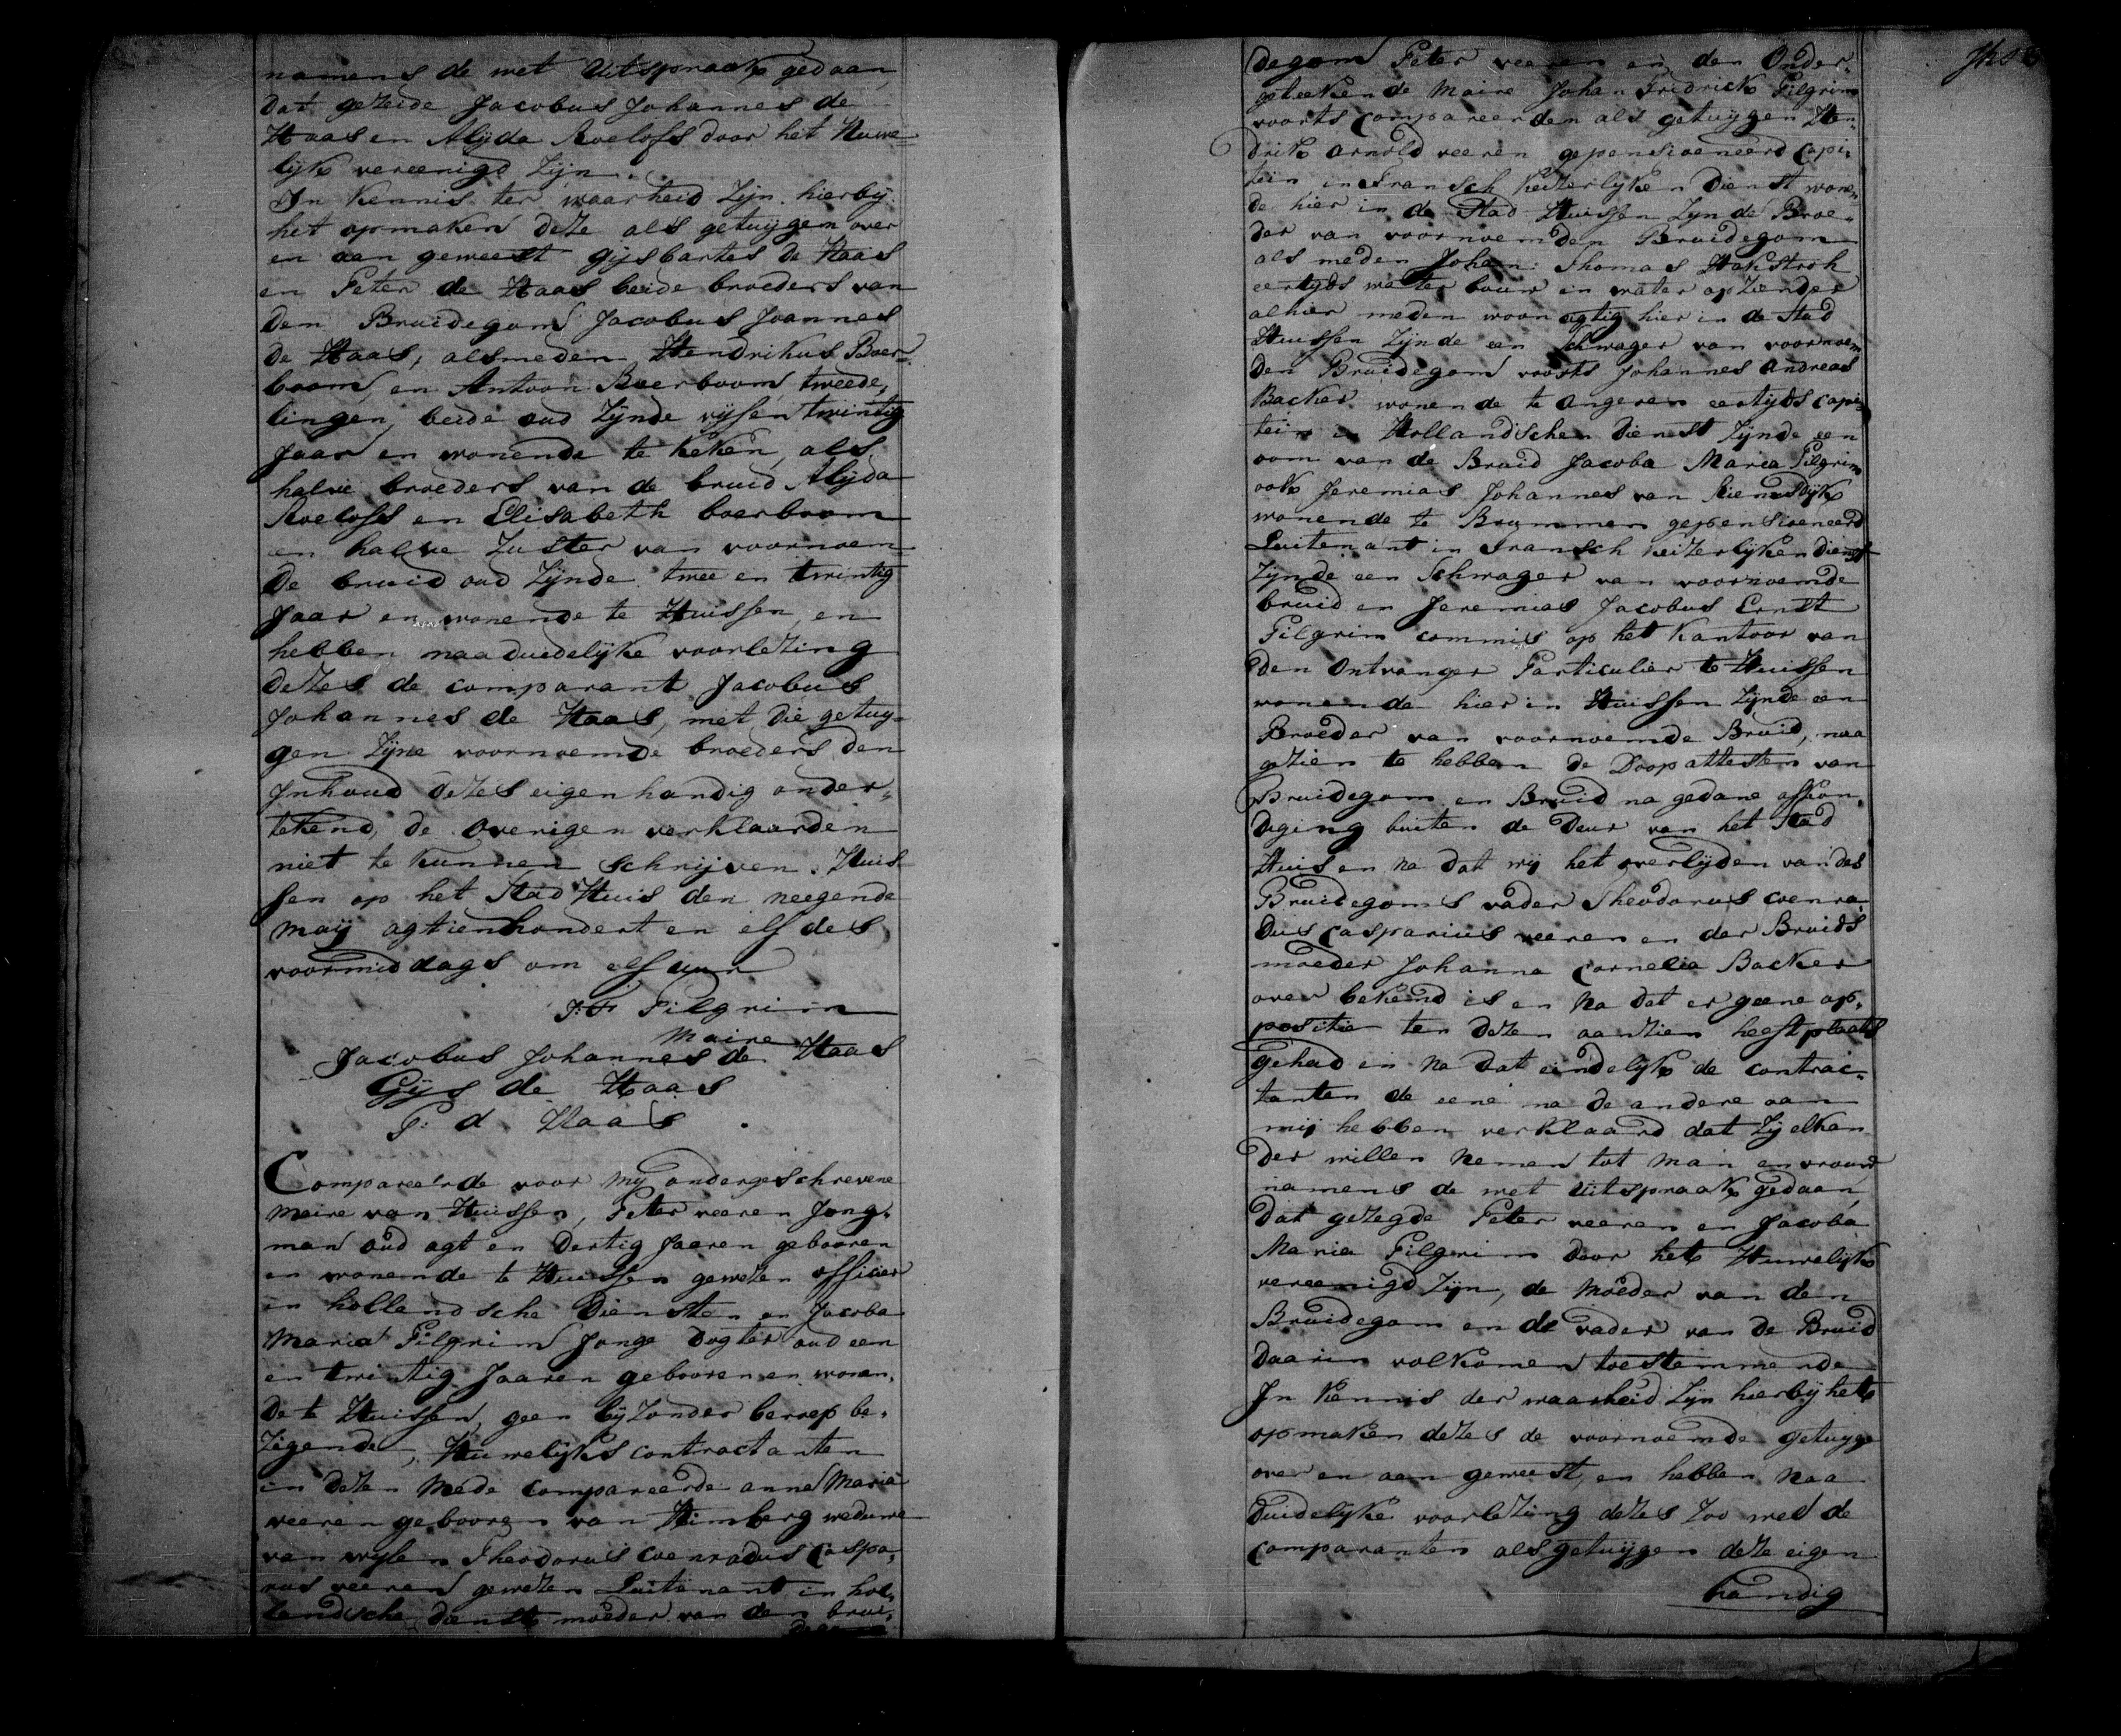 namens de wet Uitspraak gedaan
dat gezeide Jacobus Johannes de
Haas en Alyda Roeloffs door het Huwe=
lyk vereenigd Zyn.
In Kennis ter waarheid Zyn hierby
het opmaken deze als getuygen over
en aan geweest gysbartes de Haas
en Peter de Haas beide broeders van
den Bruidegom Jacobus Joannes
de Haas, alsmeden Hendrikus Boer=
boom, en Antoon Boerboom tweede,
lingen beide oud Zynde vyf en twintig
Jaar en wonende te Keken, als
halve broeders van de bruid Alyda
Roeloffs en Elisabeth boerboom
en halve Zuster van voornoem=
de bruid oud Zynde twee en twintig
Jaar en wonende te Huissen, en
hebben naa duedelyke voorlezing
dezes de comparant Jacobus
Johannes de Haas, met die getuy=
gen Zyne voornoemde broeders den
Inhoud dezes eigenhandig onder=
tekend, de overigen verklaarden
niet te kunnen schrijven. Huis
sen op het Stad Huis den neegende
maij agtienhondert en elf des
voormiddags om elf uur
J: F: Pilgrim
Maire
Jacobus Johannes de Haas
Gijs de Haas
P. d Haas
Compareerde voor my ondergeschrevene
Maire van Huissen, Peter veeren Jong=
man oud agt en dertig Jaaren gebooren
en wonende te Huissen gewezen officier
in hollandsche Diensten en Jacoba
Maria Pilgrim Jonge dogter oud een
en twintig Jaaren gebooren en wonen,
de te Huissen, geen byzonder beroep be=
Zigende, Huwelyks contractanten
in dezen Mede Compareerde anna Maria
veeren gebooren van Himberg weduwe
van wylen Theodorus Coenradus Caspa,
rus veeren gewezen Luitenant in hol,
landsche dienst moeder van den brui,
degom Peter veeren en den Onder,
geteekende Maire Johan Fridrick Pilgrim
voorts Compareerden als getuygen Hen,
drik Arnold veeren gepensioeneerd Capi,
tein in Fransch Keizerlyken Dienst wonen,
de hier in de Stad Huissen Zynde Broe,
der van voornoemden Bruidegom
als meden Johan: Thomas Hakstroh
eertyds water bouw en water opziender
alhier meden woonagtig hier in de Stad
Huissen Zynde een Schwager van voornoem
den Bruidegom voorts Johannes Andreas
Backer wonende te Angeren eertyds Capi,
tein in Hollandschen Dienst Zynde een
oom van de Bruid Jacoba Maria Pilgrim
ook Jeremias Johannes van
wonende te Brummen gepensioeneerd
Luitenant in Fransch Keizerlyken Dienst
Zynde een Schwager van voornoemde
bruid en Jeremias Jacobus Ernst
Pilgrim commis op het Kantoor van
den Ontvanger Particulier te Huissen
wonende hier in Huissen Zynde een
Broeder van voornoemde Bruid, naa
gezien te hebben de Doopattesten van
Bruidegom en Bruid na gedane affkon,
diging buiten de Deur van het Stad
Huis en na dat wy het overlyden van des
Bruidegoms vader Theodorus coenra
dus Casparius veeren en der Bruids
moeder Johanna Cornelia Backer
over bekend is en na dat er geene op,
positie ten dezen aanzien heeft plaats
gehad en na dat eindelyk de contrac=
tanten de eene na de andere aan
mij hebben verklaard dat Zy elkan
der willen nemen tot man en vrouw
namens de wet uitspraak gedaan,
dat gezegde Peter veeren en Jacoba
Maria Pilgrim door het Huwelyk
vereenigd Zyn, de Moeder van den
Bruidegom en de vader van de Bruid
daarin volkomen toestemmende
In Kennis der waarheid Zyn hierby het
opmaken dezes de voornoemde getuyge
over en aan geweest, en hebben naa
Duidelyke voorlezing dezes Zoo wel de
Comparanten als getuygen deze eigen
handig